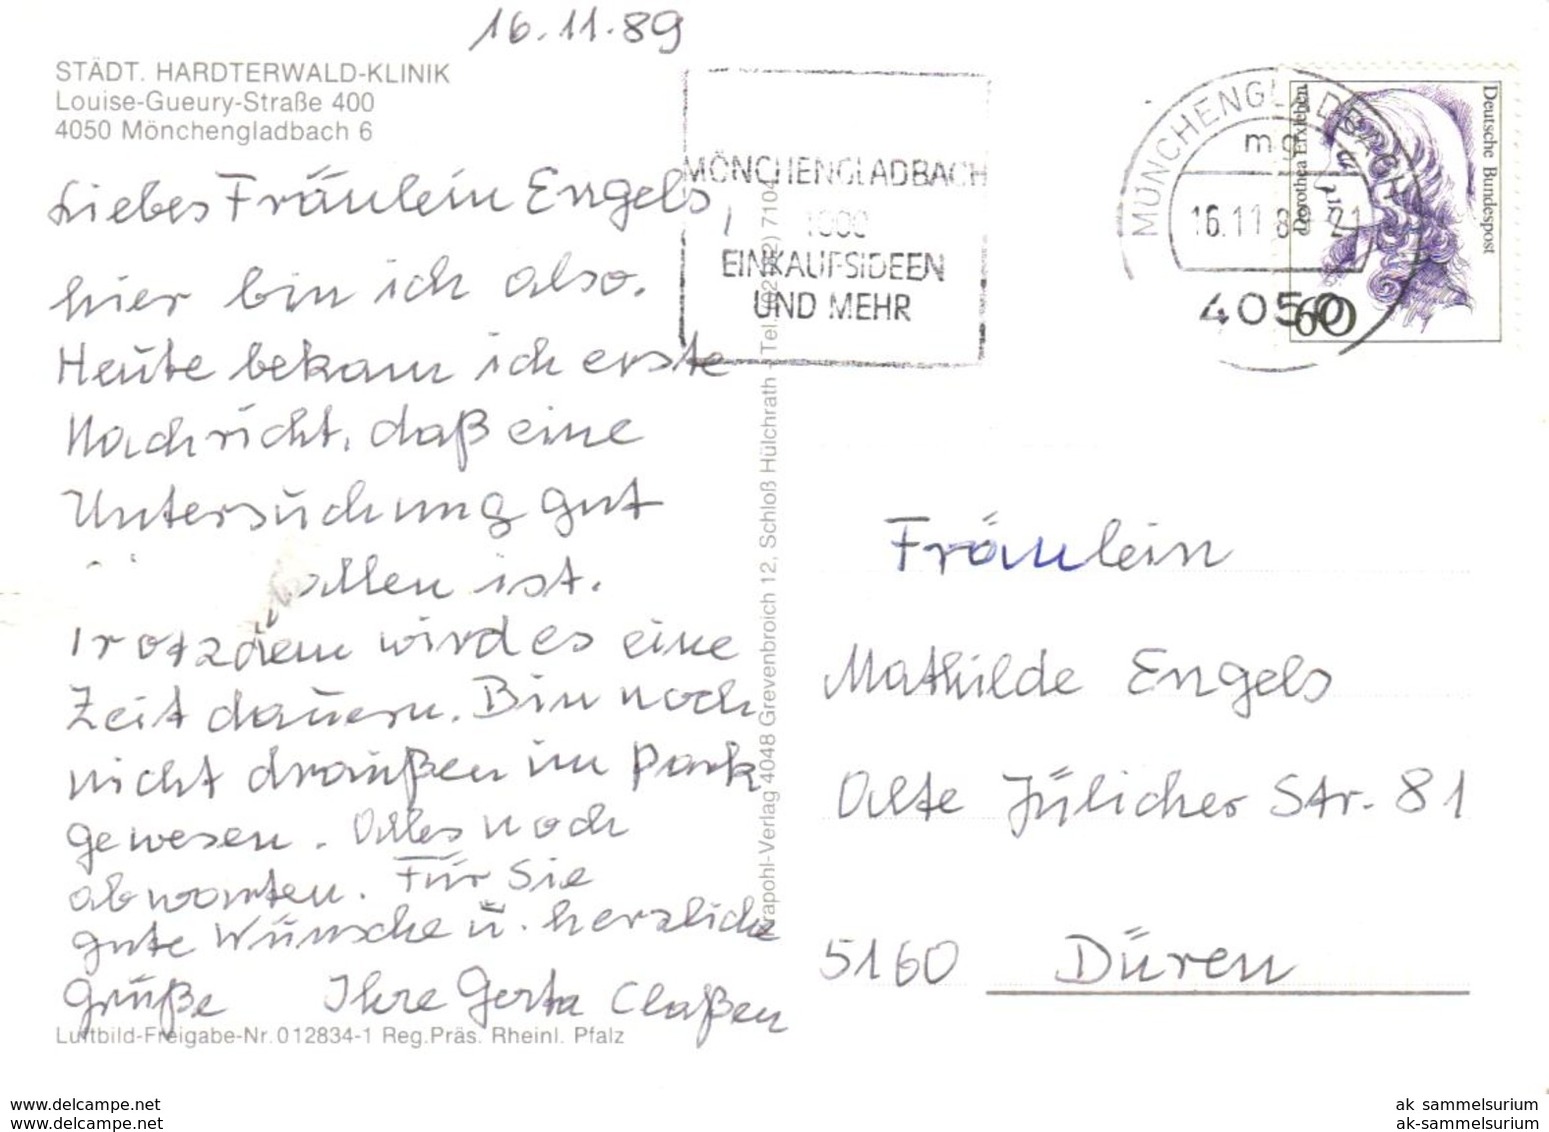 16.11.89
STÄDT. HARDTERWALD-KLINIK
Louise-Gueury-Straße 400
4050 Mönchengladbach 6
Liebes Fräulein Engels,
hier bin ich also.
Heute bekam ich erste
Nachricht, daß eine
Untersuchung gut
allen ist.
Trotzdem wird es eine
Zeit dauern. Bin noch
nicht draußen im Park
gewesen. Alles noch
abwarten. Für Sie
gute Wünsche u. herzliche
Grüße Ihre Gerta Claßen
Luftbild-Freigabe-Nr. 012834-1 Reg.Präs. Rheinl. Pfalz
MÖNCHENGLADBACH
1000
EINKAUFSIDEEN
UND MEHR
rapohl-Verlag 4048 Grevenbroich 12, Schloß Hülchrath - Tel. 7104
MÖNCHENGLADBACH
mg
16.11.8 21
4050
Dorothea Erxleben
Deutsche Bundespost
60
Fräulein
Mathilde Engels
Alte Jülicher Str. 81
5160 Düren
www.delcampe.net
www.delcampe.net
ak_sammelsurium
ak-sammelsurium